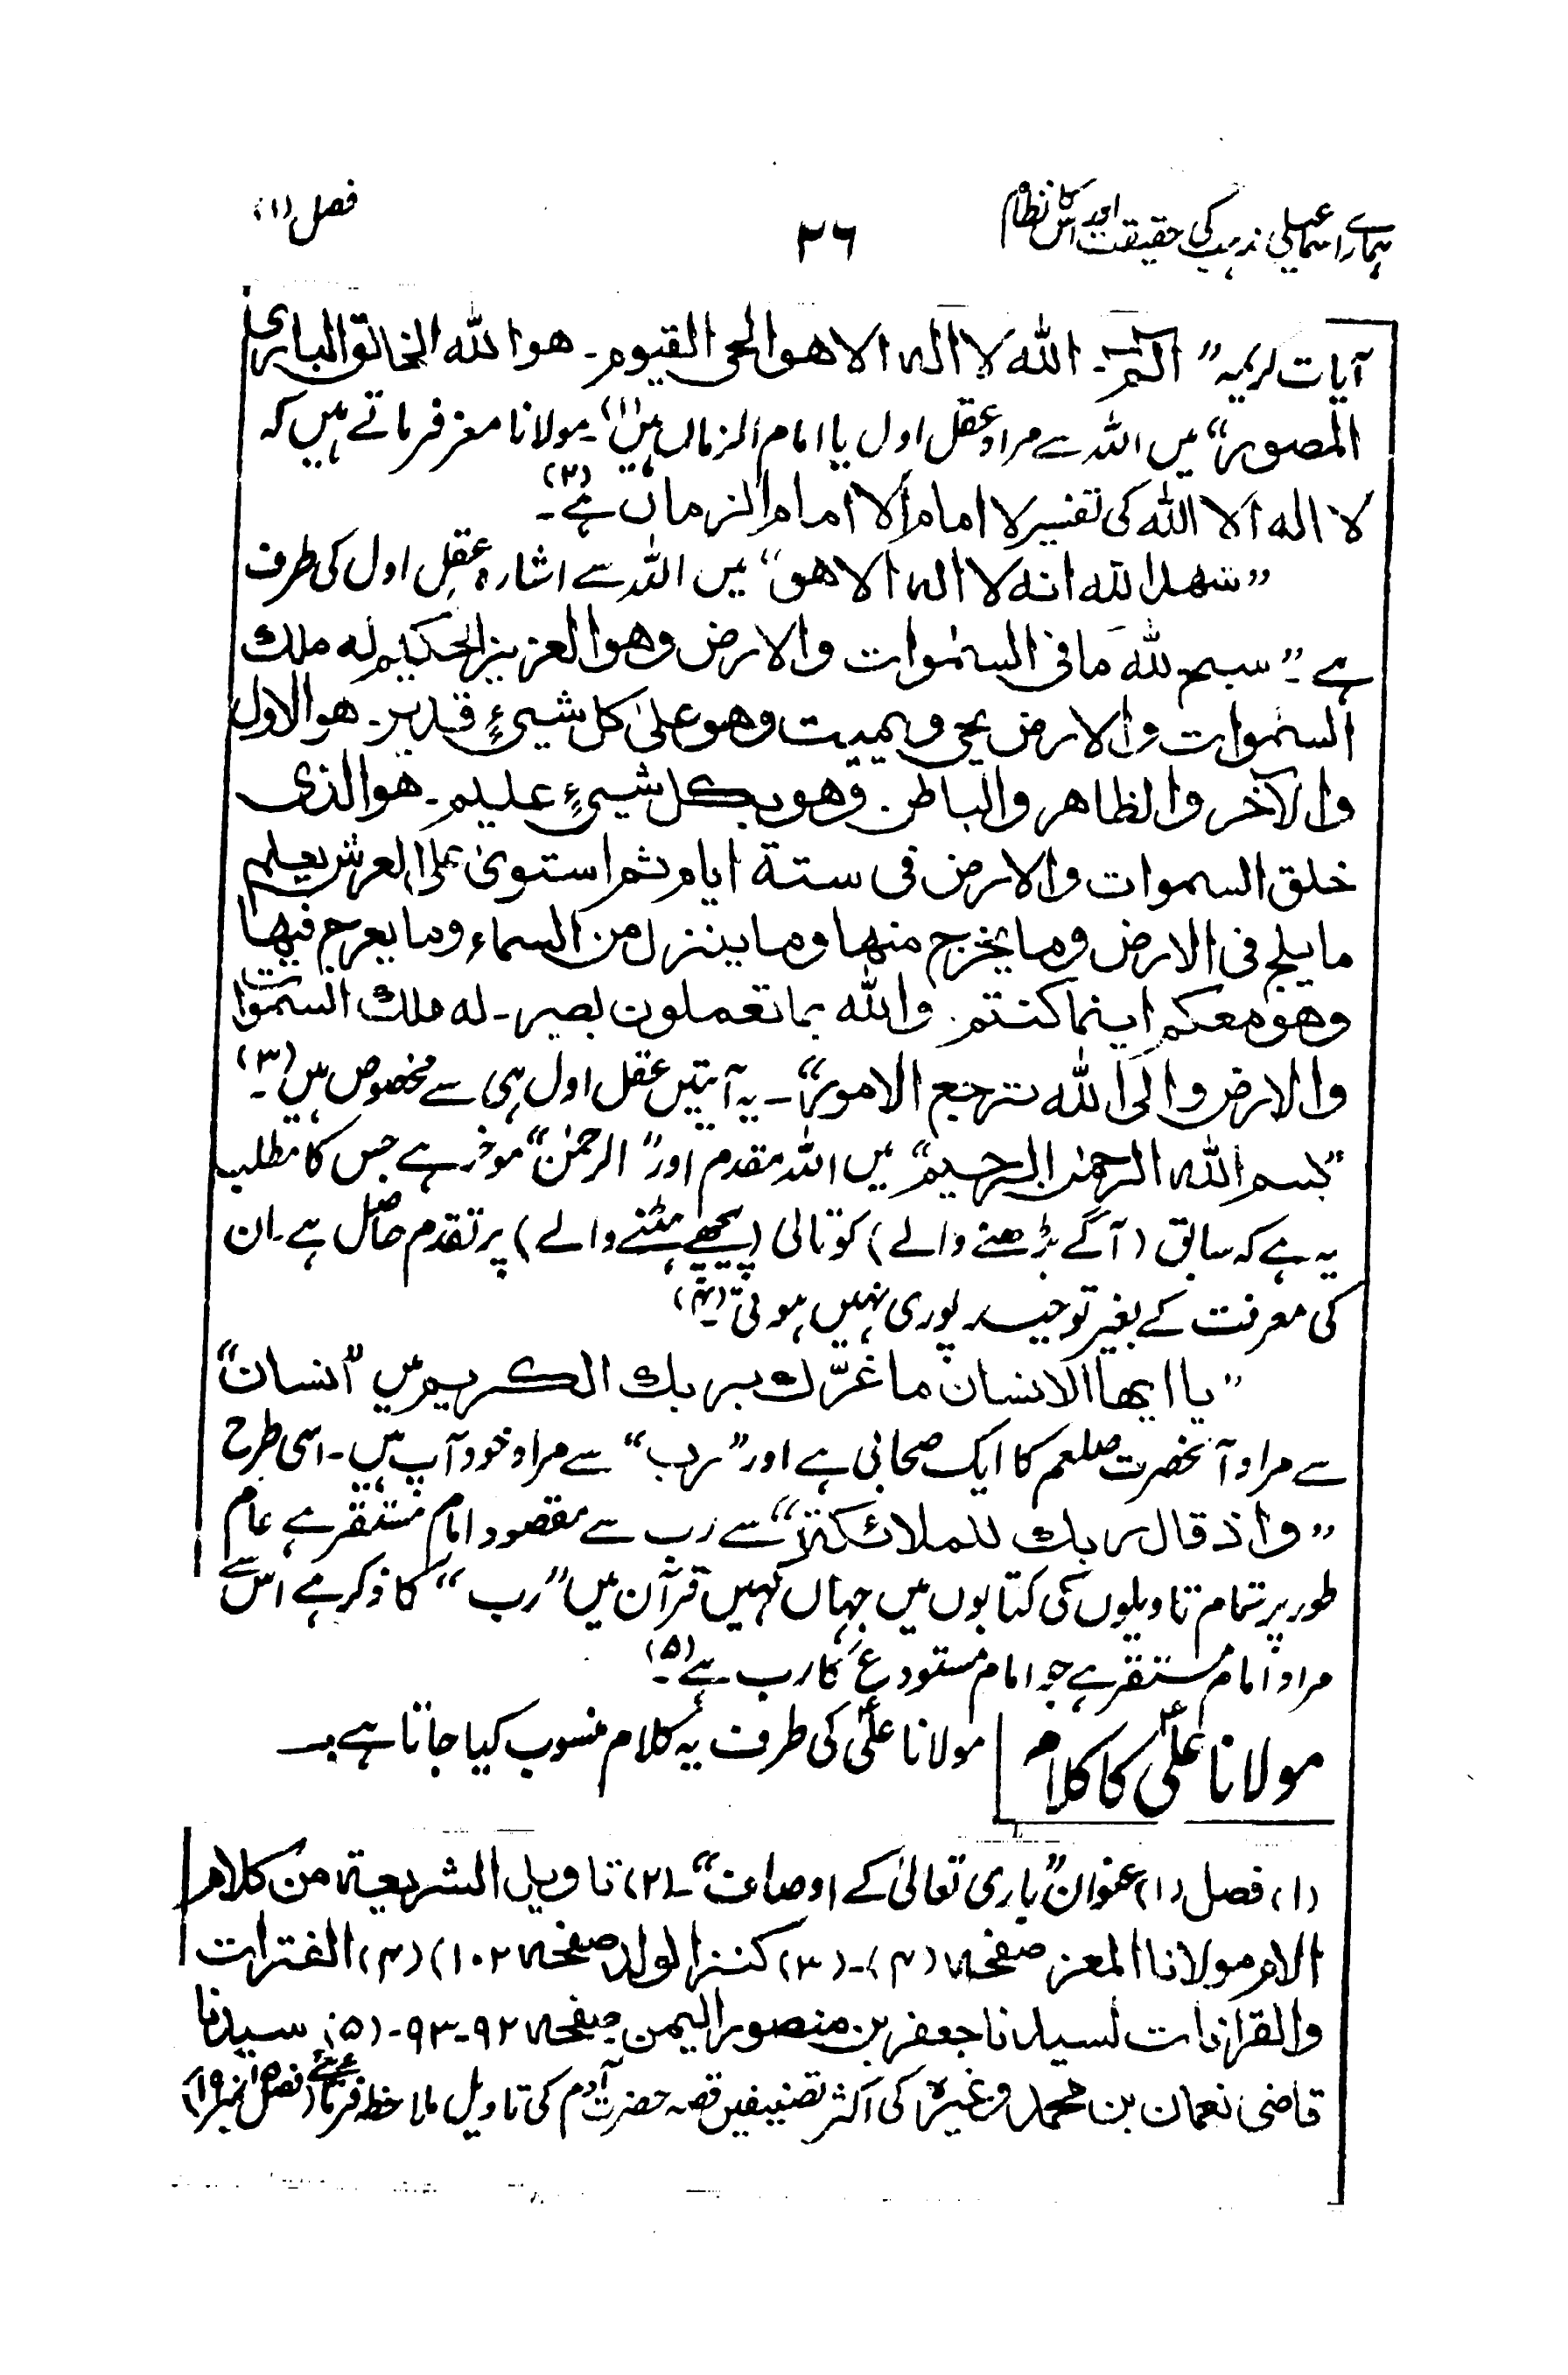 ہمارے اسماعیلی مذہب کی حقیقت اور اس کا نظام
۳۶
فصل (۱)
آیات کریمہ ”الٓمّٓ۔ اللہ لا الہ الا ھو الحی القیوم۔ ھو اللہ الخالق الباری
المصور“ میں اللہ سے مراد عقل اول یا امام الزماں ہیں (۱)۔ مولانا معز فرماتے ہیں کہ
لا الہ الا اللہ کی تفسیر لا امام الا امام الزمان ہے (۲)۔
”شھد اللہ انہ لا الہ الا ھو“ میں اللہ سے اشارہ عقلِ اول کی طرف
ہے۔ ”سبح للہ ما فی السمٰوات والارض وھو العزیز الحکیم لہ ملک
السمٰوات والارض یحی ویمیت وھو علیٰ کل شییءٍ قدیر۔ ھو الاول
والآخر والظاھر والباطن۔ وھو بکل شییءٍ علیم۔ ھو الذی
خلق السموات والارض فی ستۃ ایام ثم استویٰ علی العرش یعلم
ما یلج فی الارض وما یخرج منھا وما ینزل من السماء وما یعرج فیھا
وھو معکم اینما کنتم۔ واللہ بما تعملون بصیر۔ لہ ملک السمٰوات
والارض والی اللہ ترجع الامور“۔ یہ آیتیں عقل اول ہی سے مخصوص ہیں (۳)۔
”بسم اللہ الرحمٰن الرحیم“ میں اللہ مقدم اور ”الرحمٰن“ موخر ہے جس کا مطلب
یہ ہے کہ سابق (آگے بڑھنے والے) کو تالی (پیچھے ہٹنے والے) پر تقدم حاصل ہے۔ ان
کی معرفت کے بغیر توحید پوری نہیں ہوتی (۴)۔
”یا ایھا الانسان ما غرّک بربک الکریم میں ”انسان“
سے مراد آنحضرت صلعم کا ایک صحابی ہے اور ”رب“ سے مراد خود آپ ہیں۔ اسی طرح
”واذ قال ربک للملائکۃ“ سے رب سے مقصود امام مستقر ہے عام
طور پر تمام تاویلوں کی کتابوں میں جہاں کہیں قرآن میں ”رب“ کا ذکر ہے اس سے
مراد امام مستقر ہے جو امام مستودع کا رب ہے (۵)۔
مولانا علیؑ کا کلام
مولانا علیؑ کی طرف یہ کلام منسوب کیا جاتا ہے:۔
(۱) فصل (۱) عنوان ”باری تعالیٰ کے اوصاف“۔ (۲) تاویل الشریعۃ من کلام
الامام مولانا المعز صفحہ (۴)۔ (۳) کنز الولد صفحہ ۱۰۲) (۴) الفترات
والقرانات لسیدنا جعفر بن منصور الیمن صفحہ ۹۲۔۹۳۔ (۵) سیدنا
قاضی نعمان بن محمد وغیرہ کی اکثر تصنیفیں قصہ حضرت آدم کی تاویل ملاحظہ فرمائیے